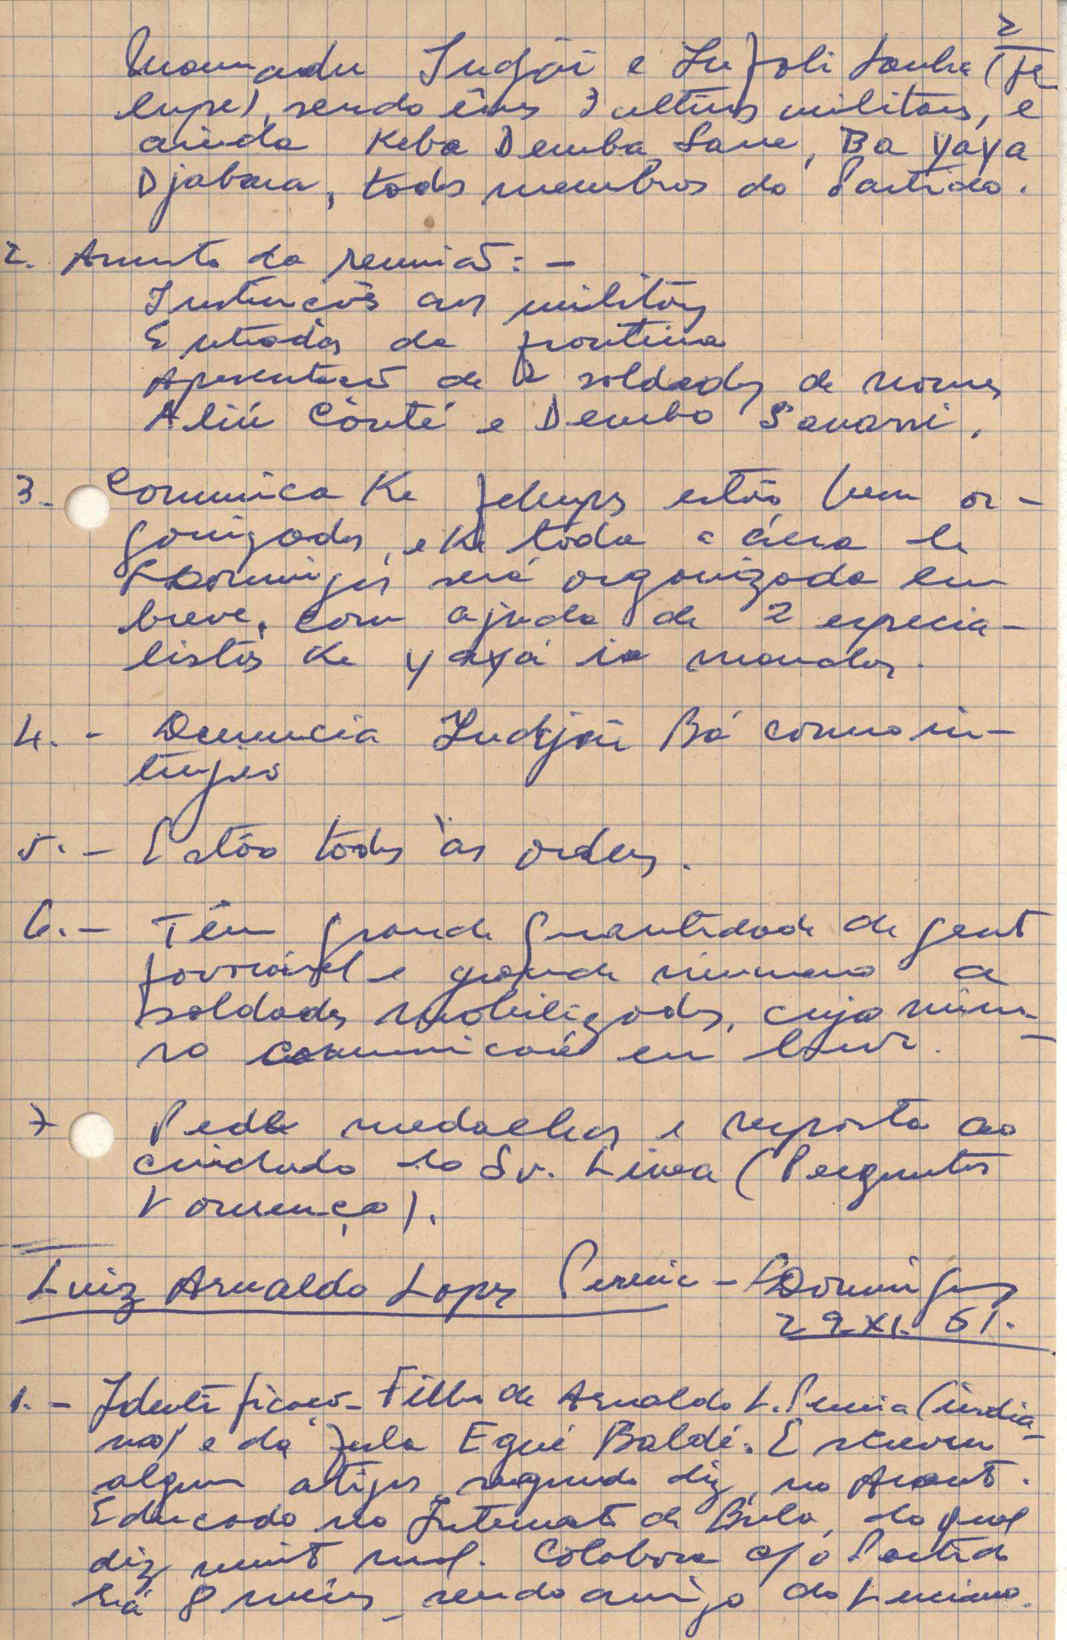 2
Mamadu Indjai e Infali Sanha (fe
lupe), sendo êsses 3 ultimos militares, e
ainda Keba Demba Sane, Ba Yaya
Djabara, todos membros do Partido.
2. Assunto da reunião: -
Instruções aos militares
Entradas da fronteira
Apresentação de 2 soldados de nomes
Aliú Cònté e Dembo
3. - Comunica Ke felupes estão bem or-
ganizados, e Ke toda a área de
S Domingos será organizada em
breve, com ajuda de 2 especia-
listas Ke Yayá ia mandar.
4. - Denuncia Indjai Bá como in-
trujão
5. - Estão todos às ordens.
6. - Têm grande quantidade de gente
favorável e grande número de
soldados mobilizados, cujo núme-
ro comunicará em breve.
7 Pede medalhas e resposta ao
cuidado do Sr. Lima (Perguntas
Lourenço).
Luiz Arnaldo Lopes Pereira - S Domingos
29.XI.61.
1. - Identificação - Filho de Arnaldo L. Pereira (india-
no) e da fula Egué Baldé. Escreveu
alguns artigos, segundo diz, no Arauto.
Educado no Internato de Bula, do qual
diz muito mal. Colabora c/o Partido
há 8 meses, sendo amigo do Luciano.